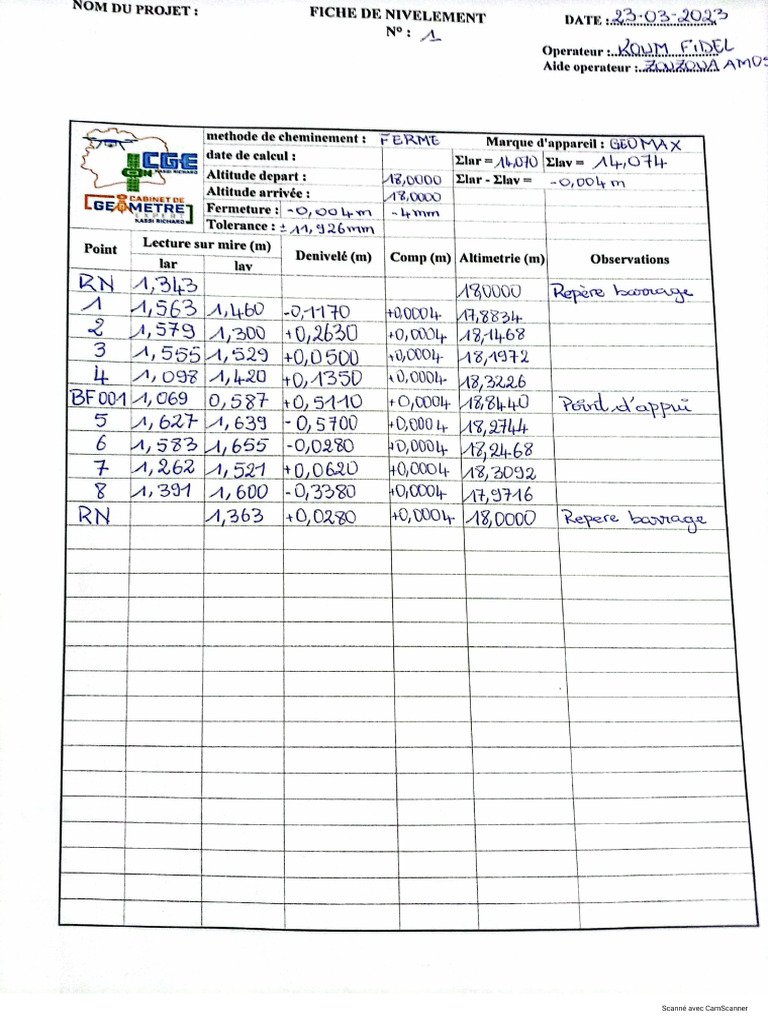 NOM DU PROJET :
FICHE DE NIVELEMENT
N° : 1
DATE :23-03-2023
Operateur : KOUM FIDEL
Aide operateur : ZOUZOUA AMOS
CGE
ION
KASSI RICHARD
CABINET DE
GEOMETRE
EXPERT
KASSI RICHARD
methode de cheminement : FERME Marque d'appareil : GEOMAX
date de calcul : Σlar = 14,070 Σlav = 14,074
Altitude depart : 18,0000 Σlar - Σlav = -0,004 m
Altitude arrivée : 18,0000
Fermeture : -0,004 m -4mm
Tolerance : ± 11,926mm
Point Lecture sur mire (m) Denivelé (m) Comp (m) Altimetrie (m) Observations
lar lav
RN 1,343 18,0000 Repère barrage
1 1,563 1,460 -0,1170 +0,0004 17,8834
2 1,579 1,300 +0,2630 +0,0004 18,1468
3 1,555 1,529 +0,0500 +0,0004 18,1972
4 1,098 1,420 +0,1350 +0,0004 18,3226
BF001 1,069 0,587 +0,5110 +0,0004 18,8440 Point d'appui
5 1,627 1,639 -0,5700 +0,0004 18,2744
6 1,583 1,655 -0,0280 +0,0004 18,2468
7 1,262 1,521 +0,0620 +0,0004 18,3092
8 1,391 1,600 -0,3380 +0,0004 17,9716
RN 1,363 +0,0280 +0,0004 18,0000 Repere barrage
Scanné avec CamScanner